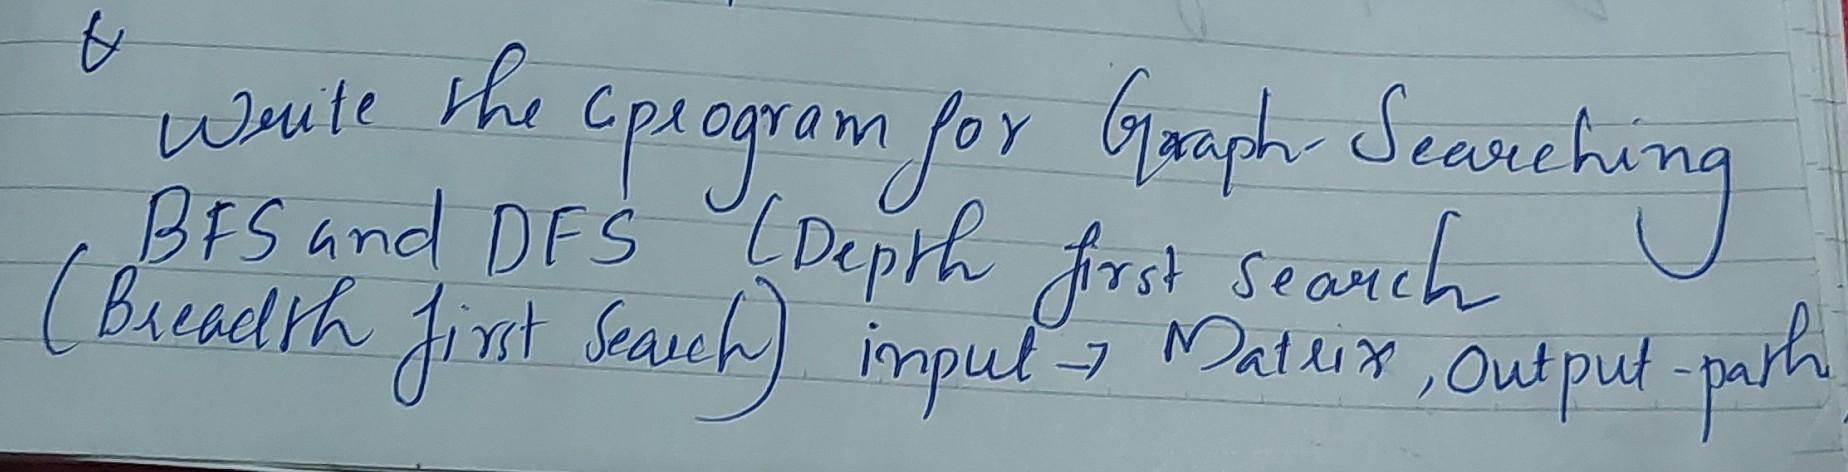 Write the C program for Graph Searching
BFS and DFS (Depth first search
(Breadth first Search) input → Matrix, Output - path